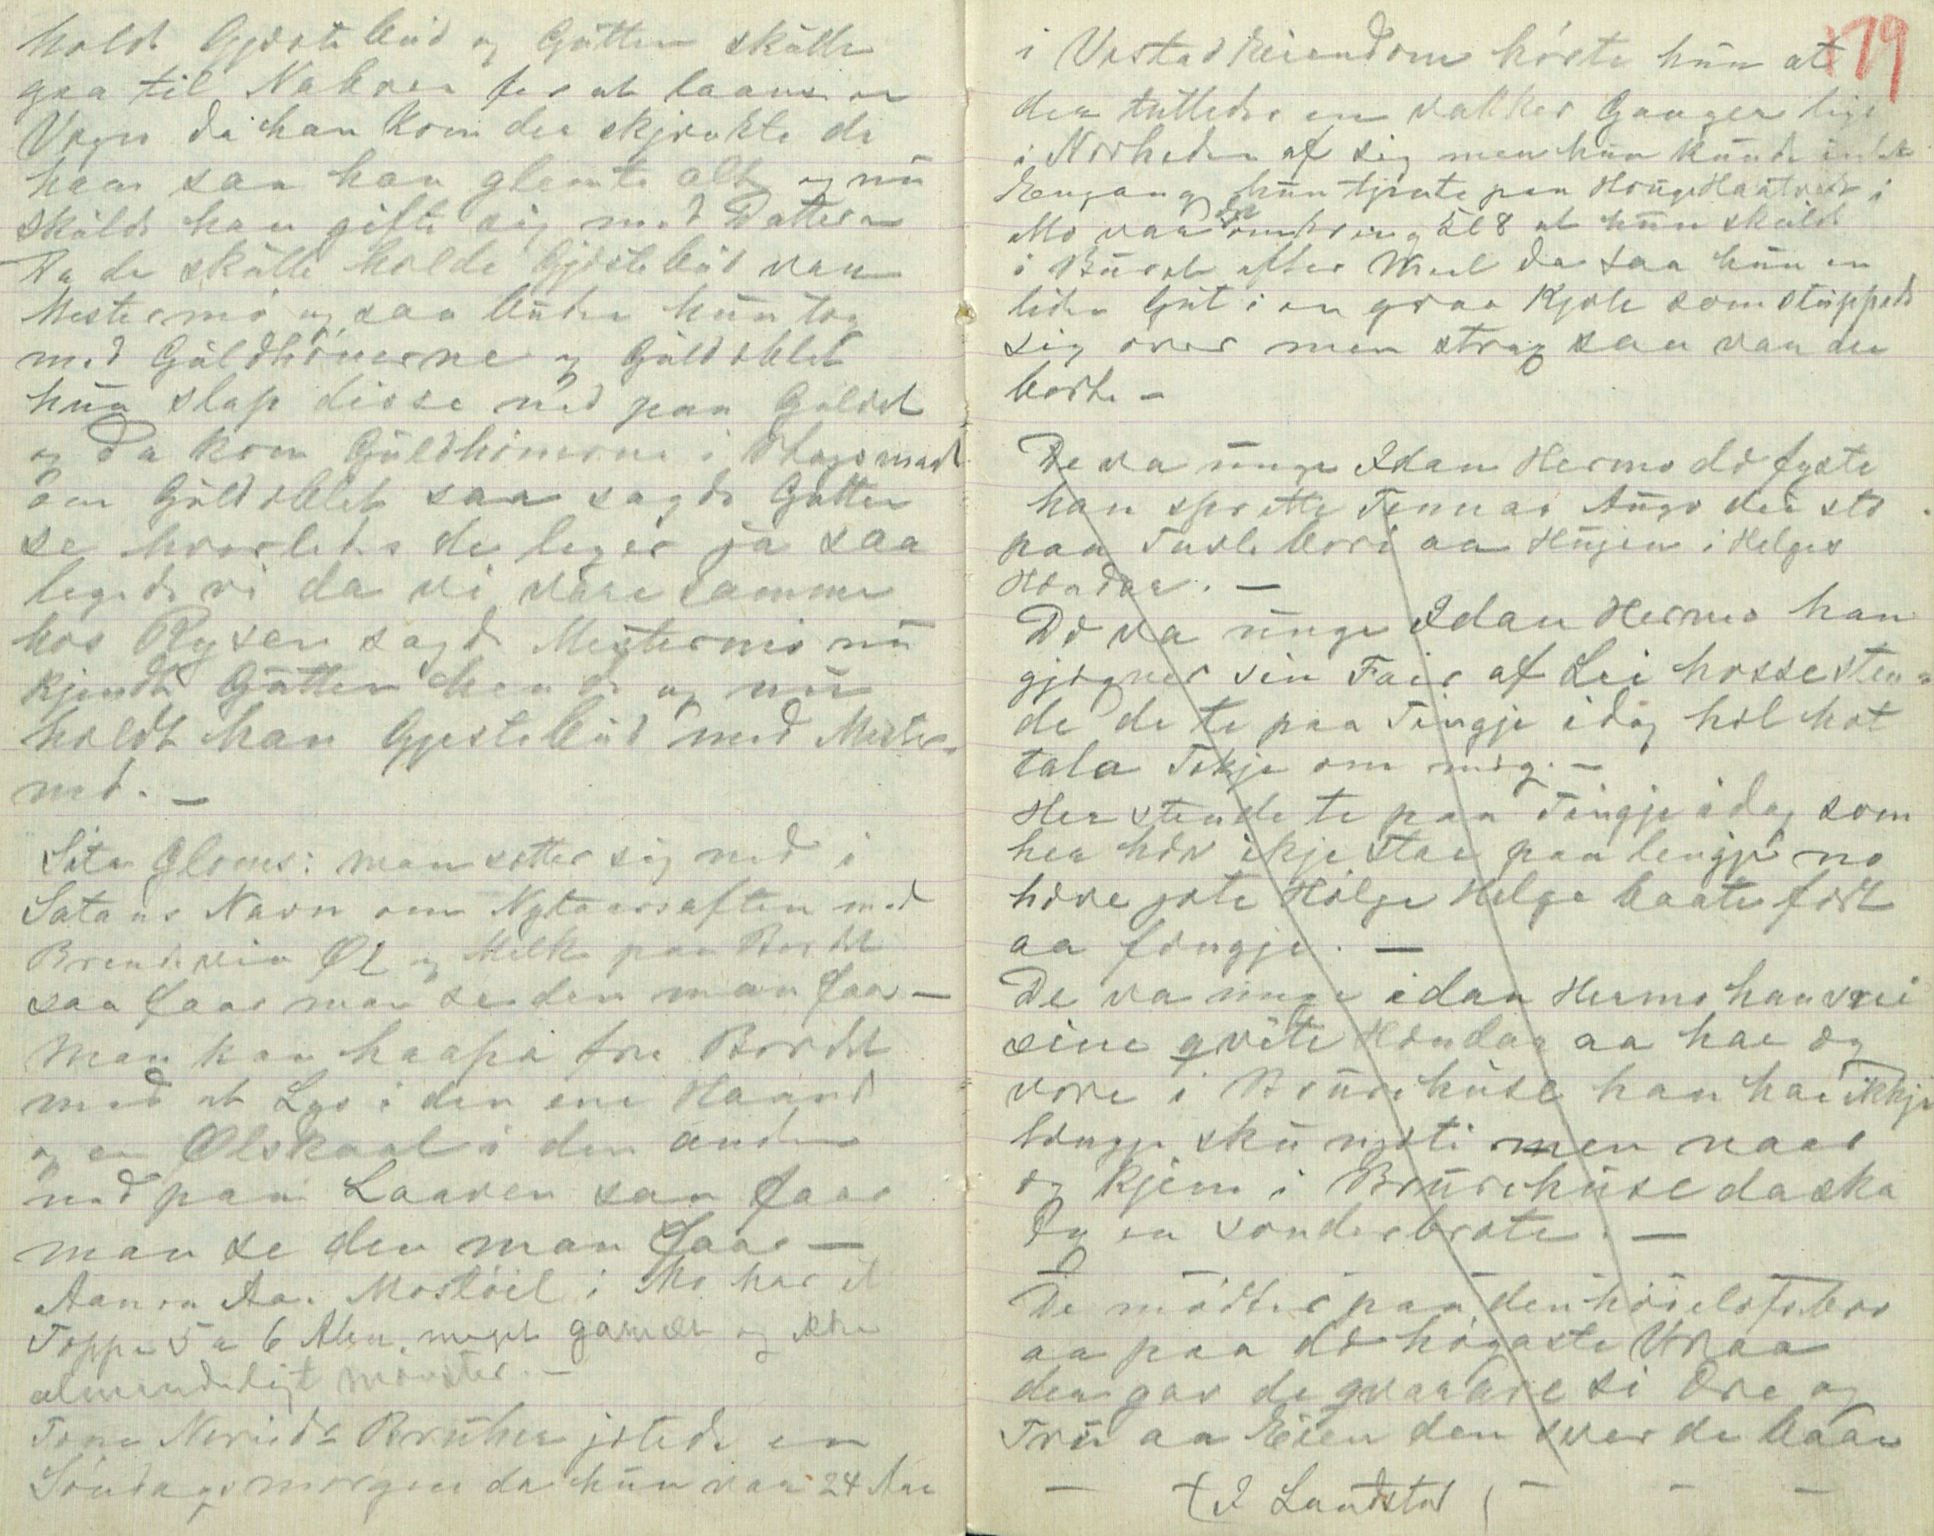 holdt Gjæstebud og Gutten skulle
gaa til Naboen for at laane en
Vogn da han kom der skjænkte de
ham saa han glemte alt og nu
skulde han gifte sig med Datteren
Da de skulle holde Gjæstebud van
Mestermø og saa buden hun tog
med Guldhønerne og Guldæblet
hun slap disse ned paa Gulvet
og da kom Guldhønerne i Slagsmaal
om Guldæblet saa sagde Gutten
se hvorledes de leger ja saa
legede vi da vi vare samme
hos Rysen sagde Mestermø nu
kjendte Gutten hende og nu
holdt han Gjestebud med Mester-
mø. —
Sita Gloms: man sætter sig ned i
Satans Navn om Nytaarsaften med
Brendevin Øl og Melk paa Bordet
saa faar man se den man faar —
Man kan haapa fra Bordet
med et Lys i den ene Haand
og en Ølskaal i den anden
ned paa Laaven saa faar
man se den man faar —
Aanen Aa. Mosbøil i Mo har et
Toppe 5 a 6 Alen, meget gammelt og
almindeligt mønster. —
Tone Neriids Bruhen jetede en
Søndagsmorgen da hun var 24 Aar
179
i Vestad Eiendom hørte hun at
der tutledes en vakker Gangen lige
i Nærheden af sig men hun kunde intet
Eengang hun tjente paa Haugehaatveit i
Mo var det omkring Kl 8 at hun skulde
i Buret efter Meel da saa hun en
liden Gut i en graa Kjole som stuppede
sig over men strax saa van der
borte —
De va unge Idan Hermo dæ fyste
han sprette Tennar Augo dei sto
paa Tavlebori aa Hugen i Helges
Hondar. —
Dæ va unge Idan Hermo han
gjægner sin Fair af Lei hosse sten-
de de te paa Tingje idag hol hot
tala Tekje om meg. —
Her stende te paa Tingje idag som
her hæv ikje stae paa lengje no
hæve jote Hølge Helga baate født
aa fængje. —
De va unge idan Hermo han vrei
sine qvite Hondar aa hae æg
vore i Brurehuse han hae ikkje
længe sku njoti men naar
æg kjem i Brurehuse da ska
Dy en sonderbrote. —
De mødtes paa den høieloftsbro
aa paa dæ høgaste Vraa
den gav de qvarare si Ore og
Tru aa Eien den svor de baae
— (I Landstad ( — — —